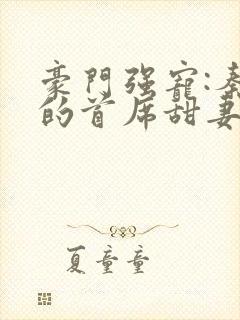 豪門强寵:秦
的首席甜妻
夏童童